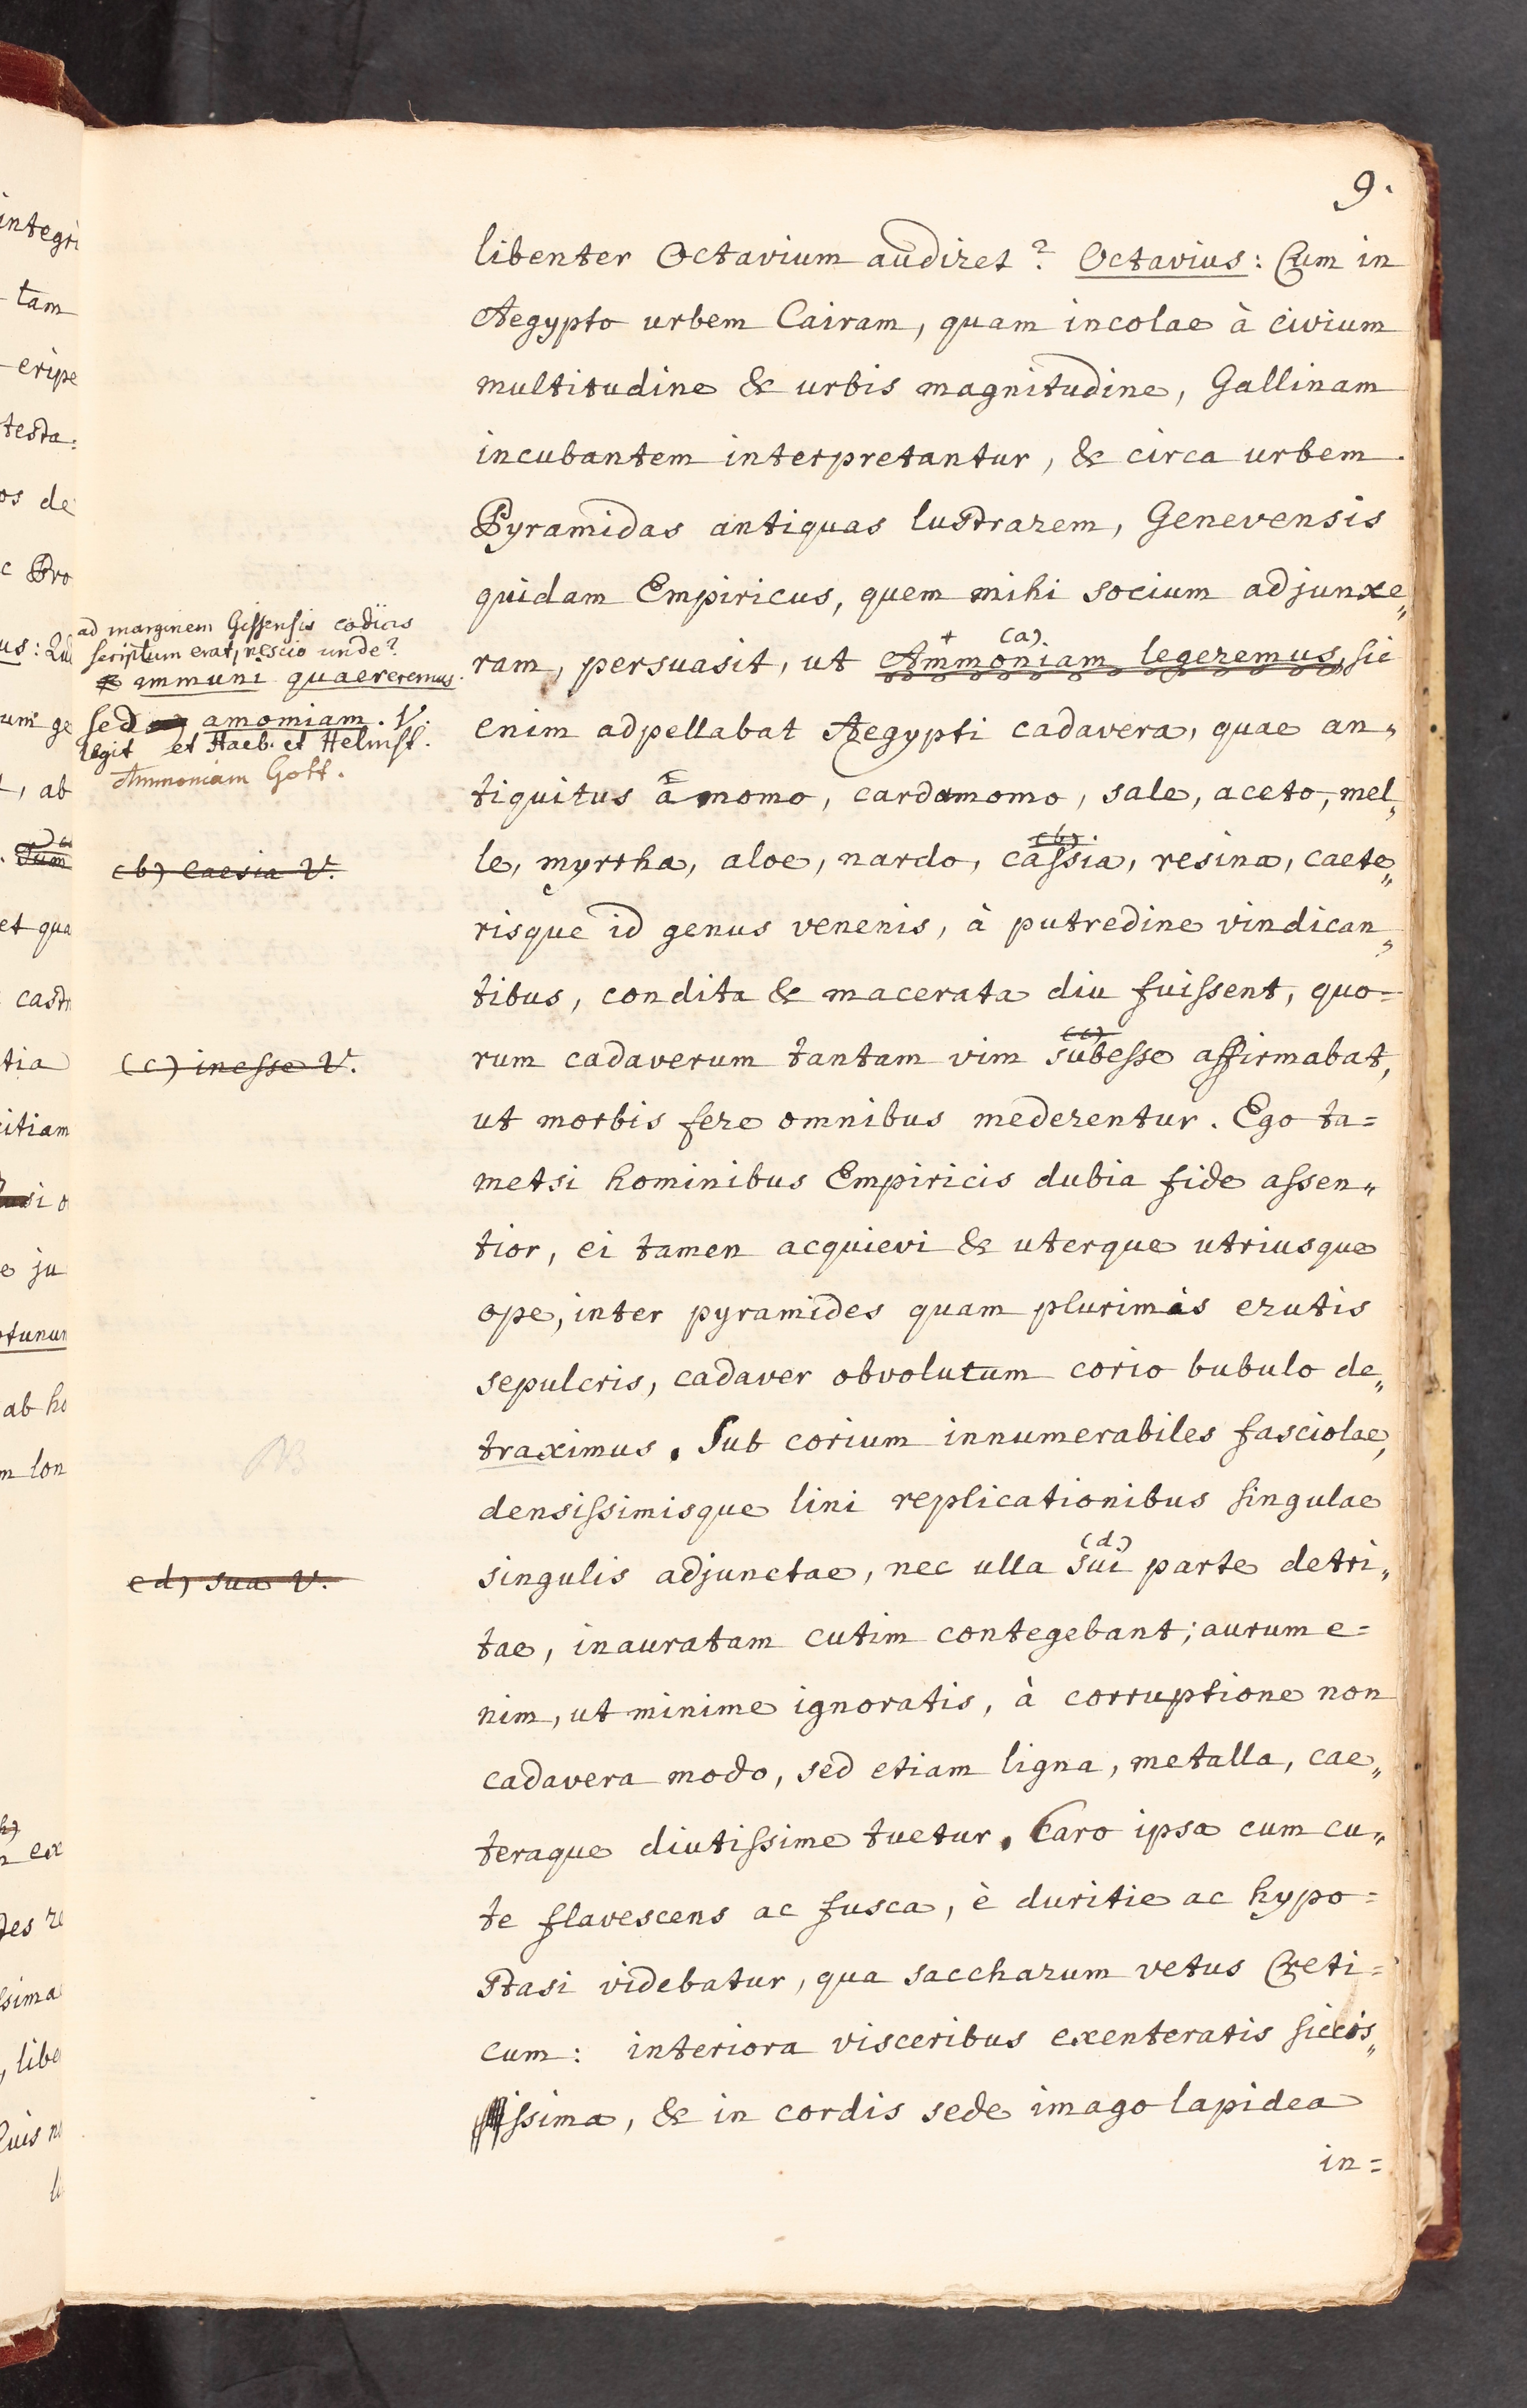 9.
libenter Octavium audiret? Octavius: Cum in
Aegypto urbem Cairam, quam incolae à civium
multitudine & urbis magnitudine, Gallinam
incubantem interpretantur, & circa urbem
Pyramidas antiquas lustrarem, Genevensis
quidam Empiricus, quem mihi socium adjunxe„
+ (a)
ram, persuasit, ut Ammoniam legeremus, sic
enim adpellabat Aegypti cadavera, quae an„
tiquitus amomo, cardamomo, sale, aceto, mel„
(b).
le, myrrha, aloe, nardo, cassia, resina, caete„
risque id genus venenis, à putredine vindican„
tibus, condita & macerata diu fuissent, quo=
(c)
rum cadaverum tantam vim subesse affirmabat,
ut morbis fere omnibus mederentur. Ego ta=
metsi hominibus Empiricis dubia fide assen„
tior, ei tamen acquievi & uterque utriusque
ope, inter pyramides quam plurimis erutis
sepulcris, cadaver obvolutum corio bubulo de„
traximus. Sub corium innumerabiles fasciolae,
densissimisque lini replicationibus singulae
(d)
singulis adjunctae, nec ulla sui parte detri„
tae, inauratam cutim contegebant; aurum e=
nim, ut minime ignoratis, à corruptione non
cadavera modo, sed etiam ligna, metalla, cae„
teraque diutissime tuetur. Caro ipsa cum cu„
te flavescens ac fusca, è duritie ac hypo=
stasi videbatur, qua saccharum vetus Creti=
cum: interiora visceribus exenteratis siccis„
ssima, & in cordis sede imago lapidea
in=
ad marginem Gissensis codicis
scriptum erat, nescio unde?
immuni quaereremus.
sed amomiam. V.
legit et Haeb. et Helmst.
Ammoniam Gott.
(b) caesia V.
(c) inesse V.
NB
(d) sua V.
integri
tam
eripe
testa:
os de
c Pro
us: Qu
um ge
, ab
Tum
et qua
tia
itiam
si o
e ju
otunum
ab ho
m lon
ex
des re
sima
, libe